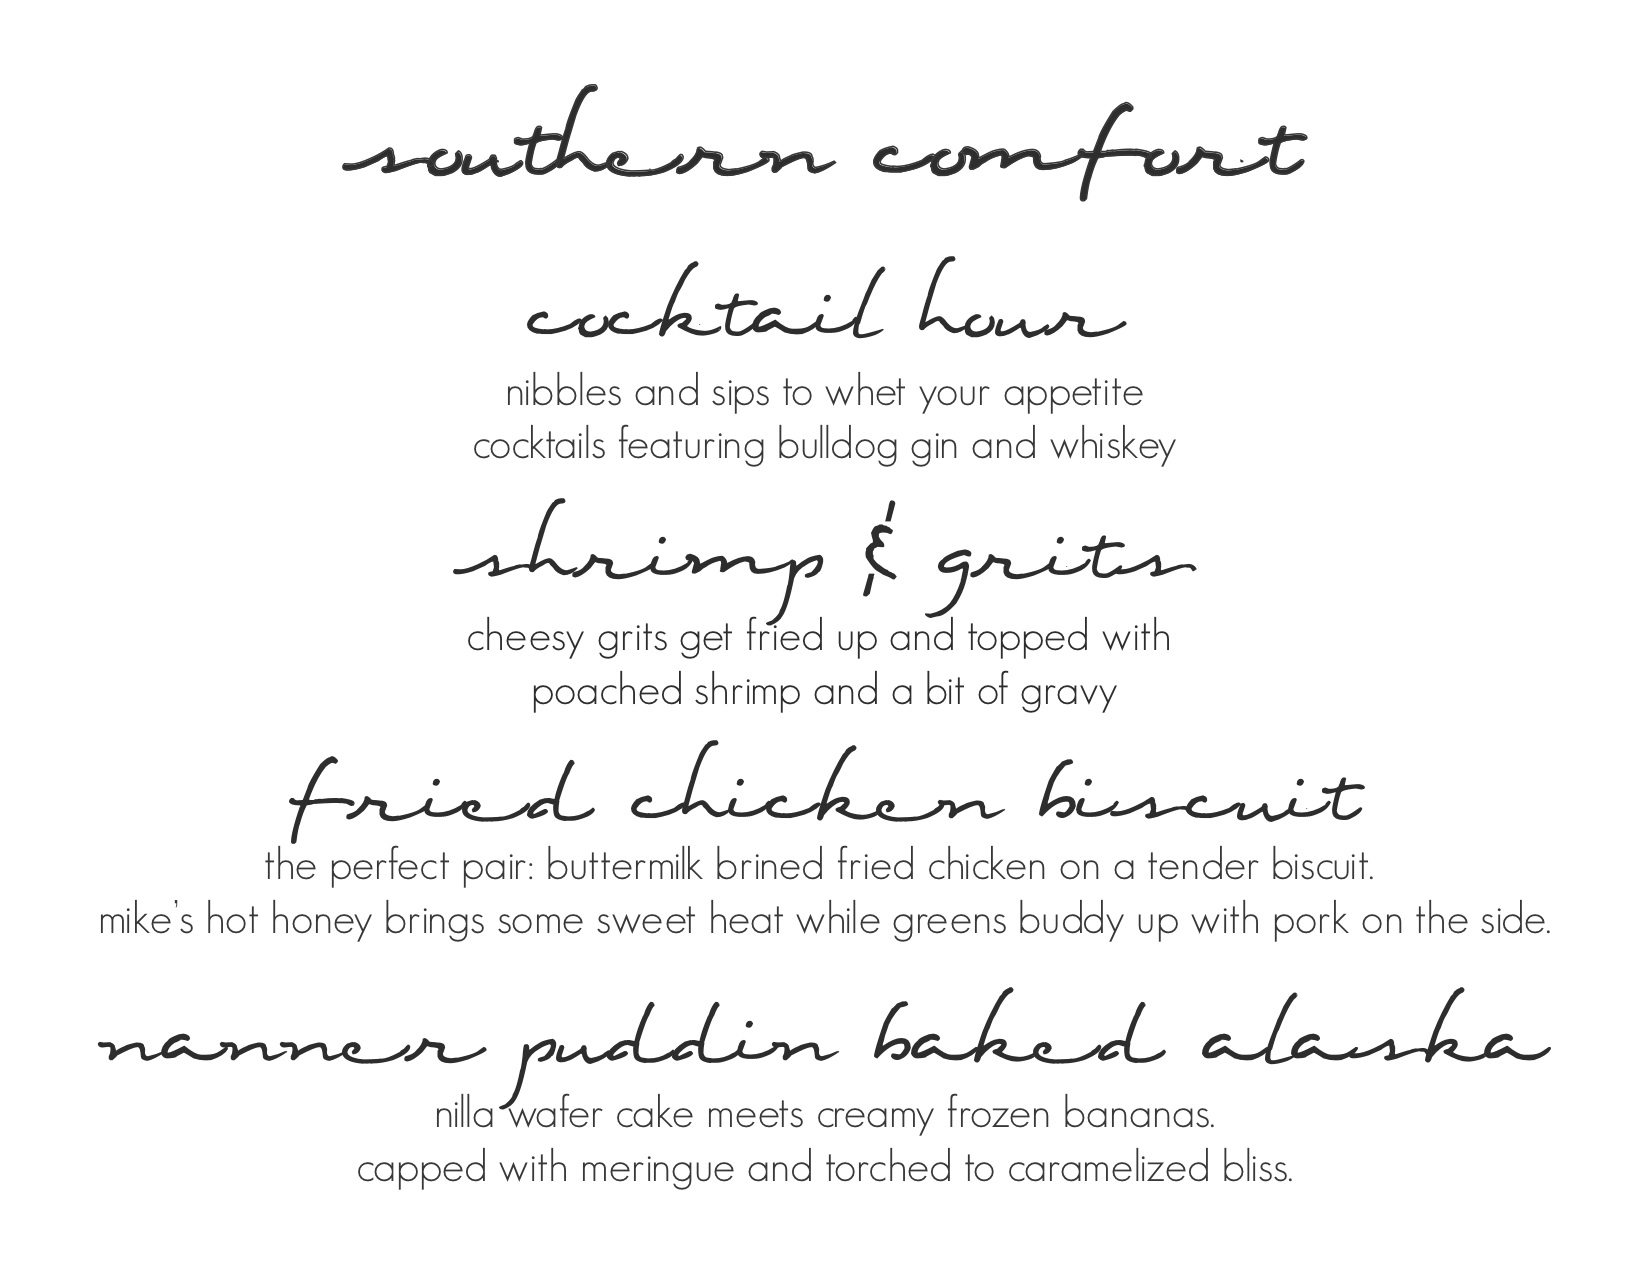 southern comfort
cocktail hour
nibbles and sips to whet your appetite
cocktails featuring bulldog gin and whiskey
shrimp & grits
cheesy grits get fried up and topped with
poached shrimp and a bit of gravy
fried chicken biscuit
the perfect pair: buttermilk brined fried chicken on a tender biscuit.
mike's hot honey brings some sweet heat while greens buddy up with pork on the side.
nanner puddin baked alaska
nilla wafer cake meets creamy frozen bananas.
capped with meringue and torched to caramelized bliss.